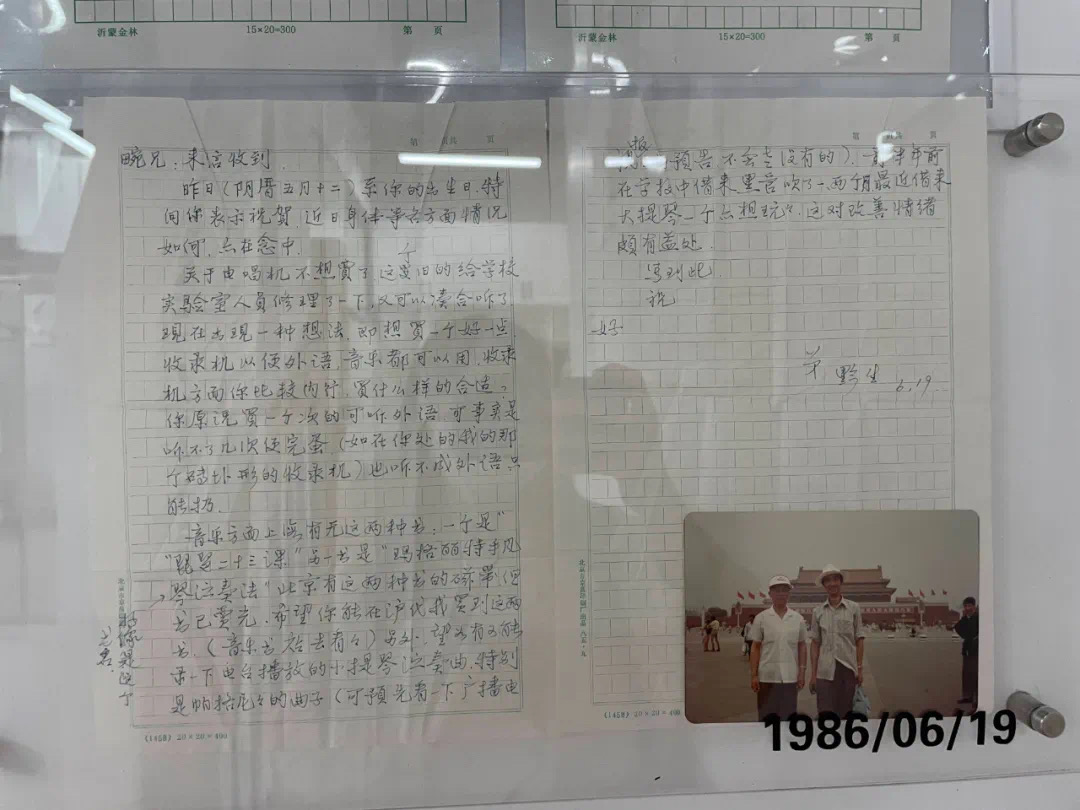 沂蒙金林 15×20=300 第 頁
沂蒙金林 15×20=300 第 頁
第 頁共 頁
畹兄：来信收到.
昨日(阴历五月十二)系你的出生日.特
向你表示祝賀.近日身体等各方面情况
如何,点在念中.
关于电唱机不想買了这个旧的给学校
实验室人员修理了一下,又可以凑合听了
现在出现一种想法,即想買一个好一点
收录机以便外语,音乐都可以用,收录
机方面你比较内行,買什么样的合适?
你原说買一个次的可听外语,可事实是
听不了几次便完蛋(如在你处的我的那
个砖块形的收录机)也听不成外语只
能扔.
音乐方面上海有无这两种书:一个是"
二十三课"另一书是"玛格丽特手风
琴演奏法"北京有这两种书的磁带但
书已賣光.希望你能在沪代我買到这两
书.(音乐书站去看々)另外,望有不能
录一下电台播放的小提琴演奏曲.特别
是帕格尼尼的曲子(可預先看一下广播电
好像是这个
书名.
(1458) 20×20=400
第 頁共 頁
报預告不会是没有的).前半年前
在学校中借来黑管吹了一两个月最近借来
大提琴一个点想玩々.这对改善情绪
颇有益处.
写到此.
祝
好
弟 野生 6.19.
(1458) 20×20=400
1986/06/19